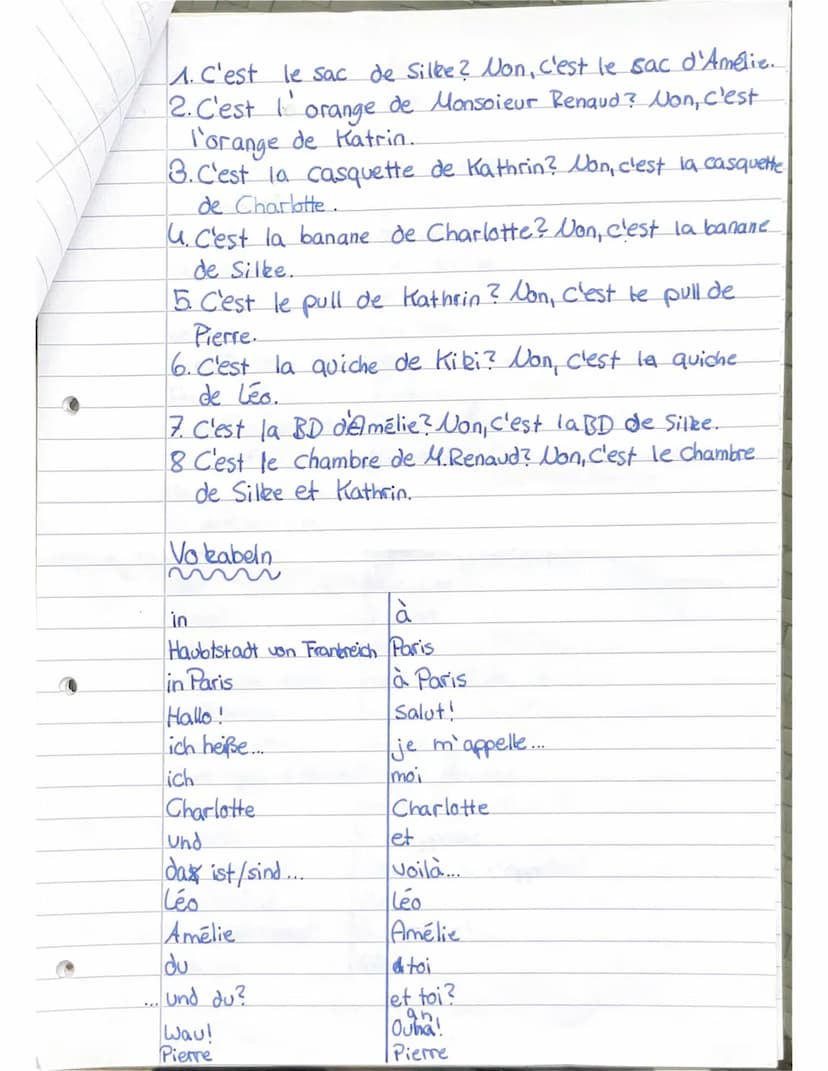 1. C'est le sac de Silke? Non, c'est le sac d'Amélie.
2. C'est l'orange de Monsoieur Renaud? Non, c'est
l'orange de Katrin.
3. C'est la casquette de Kathrin? Non, c'est la casquette
de Charlotte.
4. C'est la banane de Charlotte? Non, c'est la banane
de Silke.
5. C'est le pull de Kathrin? Non, c'est le pull de
Pierre.
6. C'est la quiche de Kiki? Non, c'est la quiche
de Léo.
7. C'est la BD d'Amélie? Non, c'est la BD de Silke.
8 C'est le chambre de M. Renaud? Non, c'est le chambre
de Silke et Kathrin.
Vokabeln
in à
Haubtstadt von Frankreich Paris
in Paris à Paris
Hallo! Salut!
ich heiße... je m'appelle...
ich moi
Charlotte Charlotte
und et
das ist/sind... voilà...
Léo Léo
Amélie Amélie
du toi
... und du? et toi?
Wau! Ouha!
Pierre Pierre